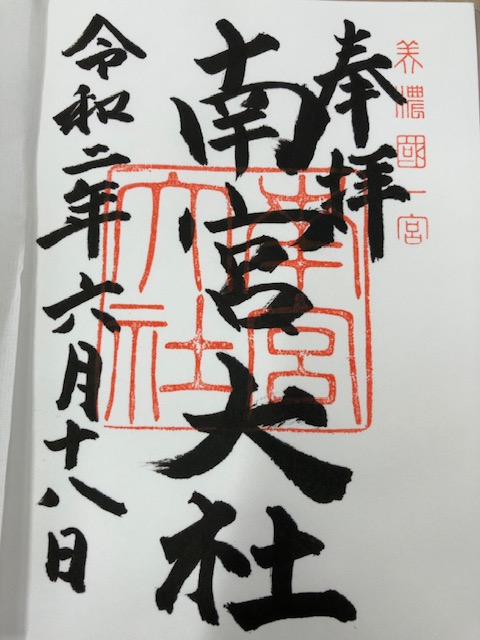 美濃國一宮
奉拝
南宮大社
南宮
大社
令和二年六月十八日